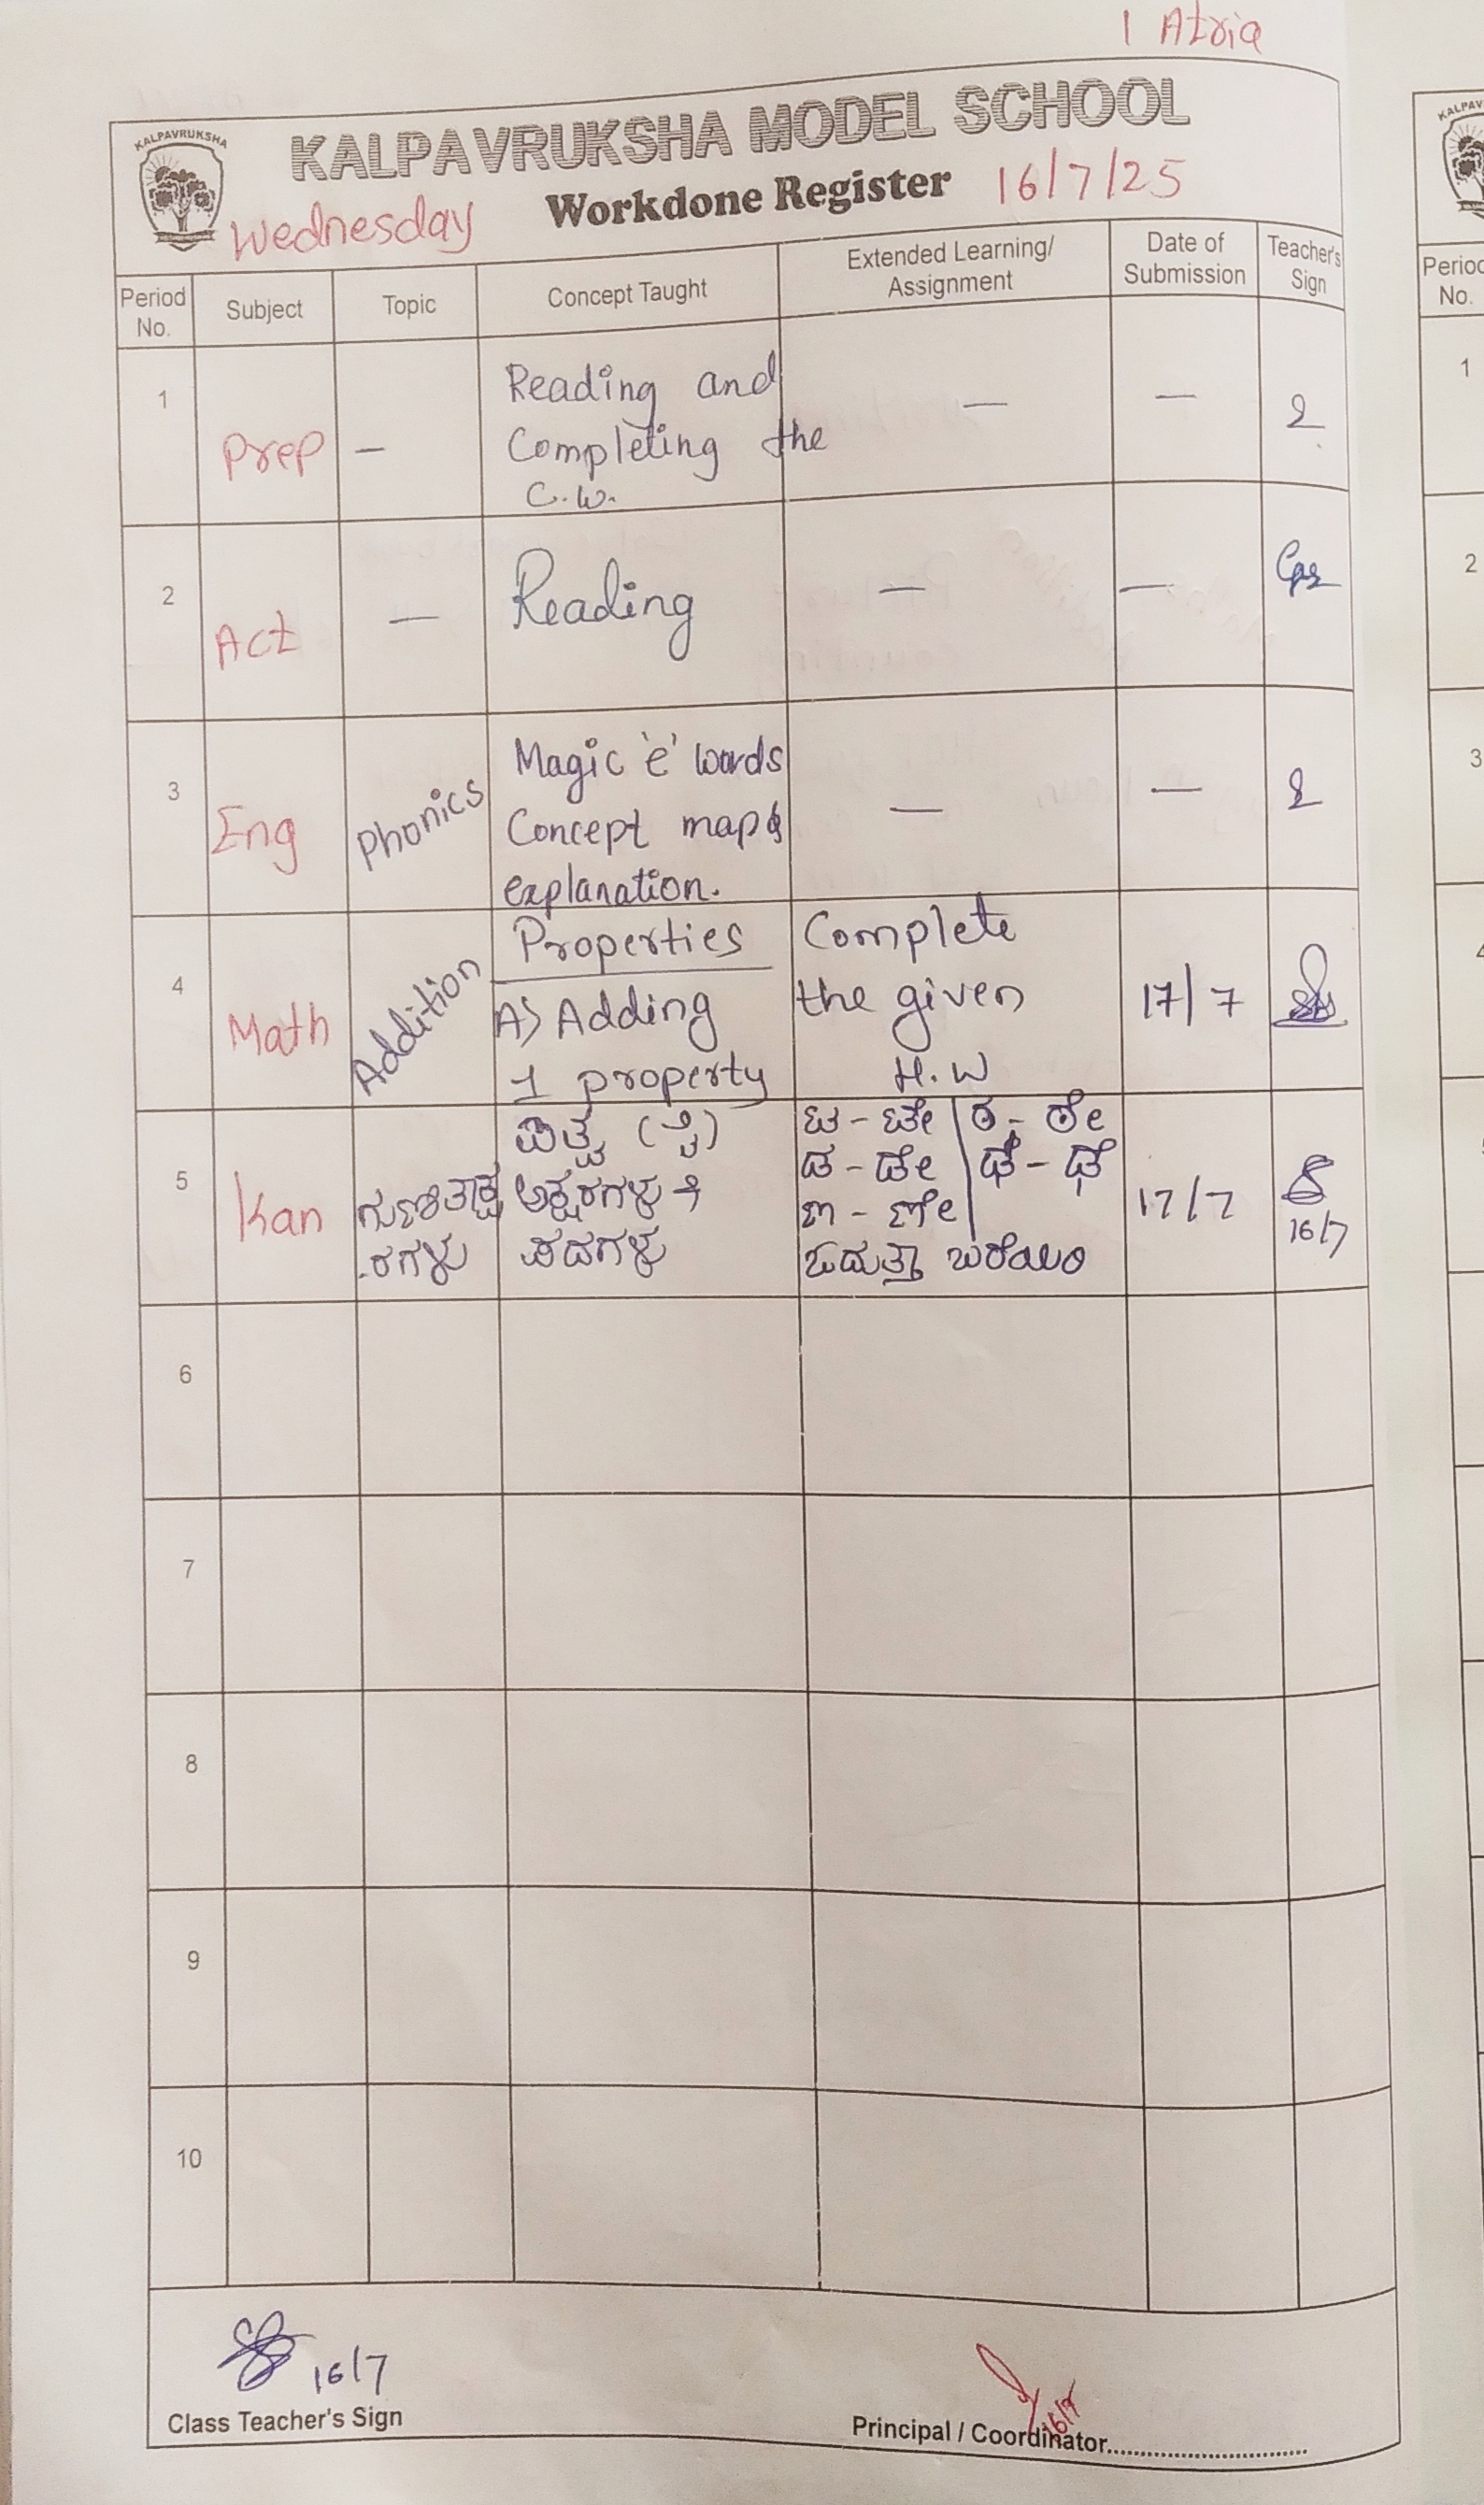 1 Atria
KALPAVRUKSHA
KALPAVRUKSHA MODEL SCHOOL
Wednesday Workdone Register 16/7/25
Period No. Subject Topic Concept Taught Extended Learning/ Assignment Date of Submission Teacher's Sign
1 Prep — Reading and — —
Completing the
C.W.
2 Act — Reading — —
3 Eng Phonics Magic 'e' words — —
Concept map &
explanation.
4 Math Addition Properties Complete
A) Adding the given 17/7
1 property H.W
5 Kan ಗುಣಿತಾಕ್ಷ ಅಕ್ಷರಗಳು 17/7 16/7
ರಗಳು ಪದಗಳು
ಟ - ಟೇ ಠ - ಠೇ
ಡ - ಡೇ
ಣ - ಣೇ
ಓದುತ್ತಾ ಬರೆಯಿರಿ
6
7
8
9
10
16/7
Class Teacher's Sign
16/7
Principal / Coordinator
KALPAV
Period
No.
1
2
3